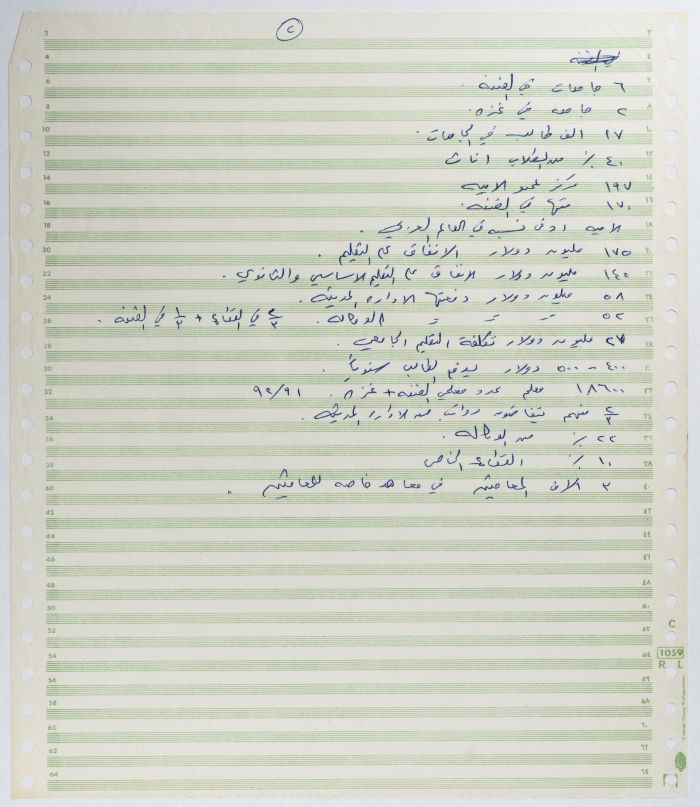 ٢
٦ جامعات في الضفه .
٢ جامعه في غزه .
١٧ الف طالب في الجامعات .
٤٠ ٪ من الطلاب اناث
١٩٧ مركز لمحو الاميه
١٧٠ منها في الضفه .
الاميه ادنى نسبه في العالم العربي .
١٧٥ مليون دولار الانفاق على التعليم .
١٤٥ مليون دولار الانفاق على التعليم الاساسي والثانوي .
٥٨ مليون دولار دفعتها الاداره المدنيه .
٥٢ = = الوكاله . ٢/٣ في القطاع + ١/٣ في الضفه .
٢٧ مليون دولار تكلفة التعليم الجامعي .
٤٠٠ - ٥٠٠ دولار يدفع الطالب سنوياً .
١٨٦٠٠ معلم عدد معلمي الضفه + غزه . ٩١/٩٢
٢/٣ منهم يتقاضون رواتب من الاداره المدنيه .
٢٢ ٪ من الوكاله .
١٠ ٪ القطاع الخاص
٣ الاف المعاقين في معاهد خاصه للمعاقين .
C
1059
R L